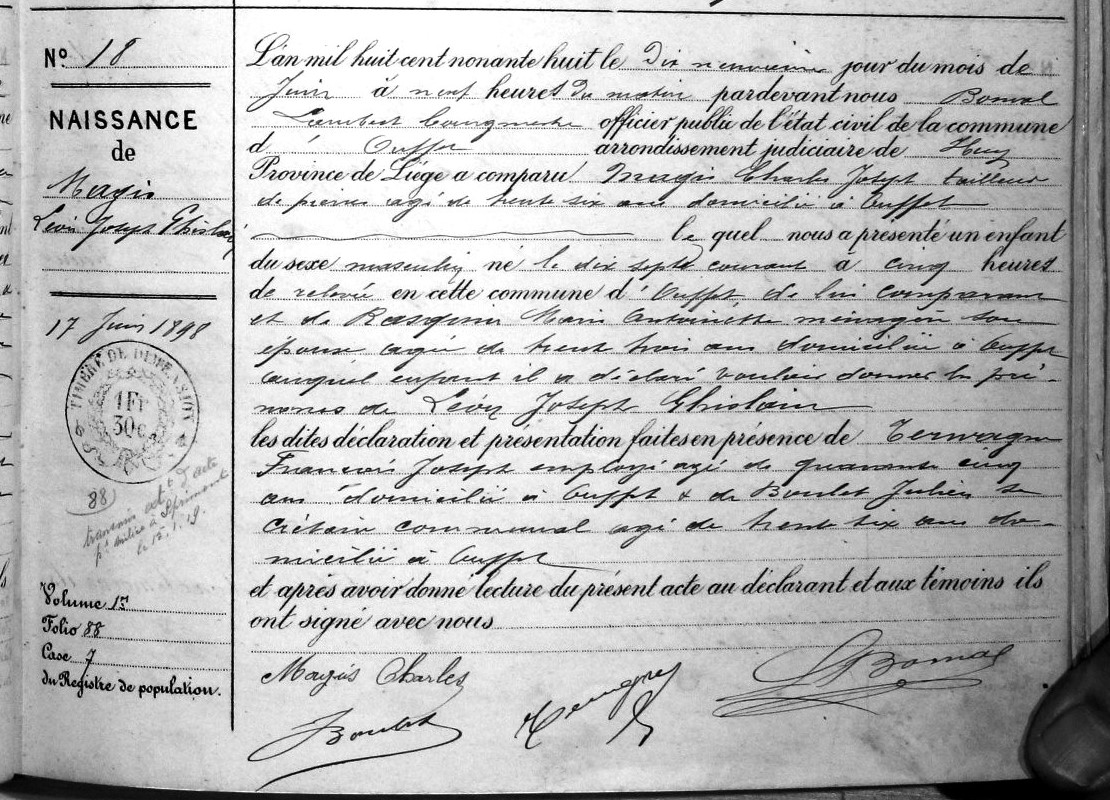 N° 18
NAISSANCE
de
Magis
Léon Joseph Ghislain
17 Juin 1898
TIMBRE DE DIMENSION
1 Fr
30 c.
88
Volume 17
Folio 88
Case 7
du Registre de population.
L'an mil huit cent nonante huit le dix neuvième jour du mois de
Juin à neuf heures du matin pardevant nous Bomal
Lambert bourgmestre officier public de l'état civil de la commune
d' Ouffet arrondissement judiciaire de Huy
Province de Liége a comparu Magis Charles Joseph tailleur
de pierres agé de trente six ans domicilié à Ouffet
le quel nous a presenté un enfant
du sexe masculin né le dix sept courant à cinq heures
de relevée en cette commune d'Ouffet, de lui comparant
et de Rasquin Marie Antoinette ménagère son
épouse agée de trente trois ans domiciliée à Ouffet
auquel enfant il a déclaré vouloir donner les pré-
noms de Léon Joseph Ghislain
les dites déclaration et présentation faites en présence de Terwagne
François Joseph employé agé de quarante cinq
ans domicilié à Ouffet & de Boulet Julien se
crétaire communal agé de trente six ans do-
micilié à Ouffet
et après avoir donné lecture du présent acte au déclarant et aux témoins ils
ont signé avec nous
Magis Charles
LBomal
JBoulet